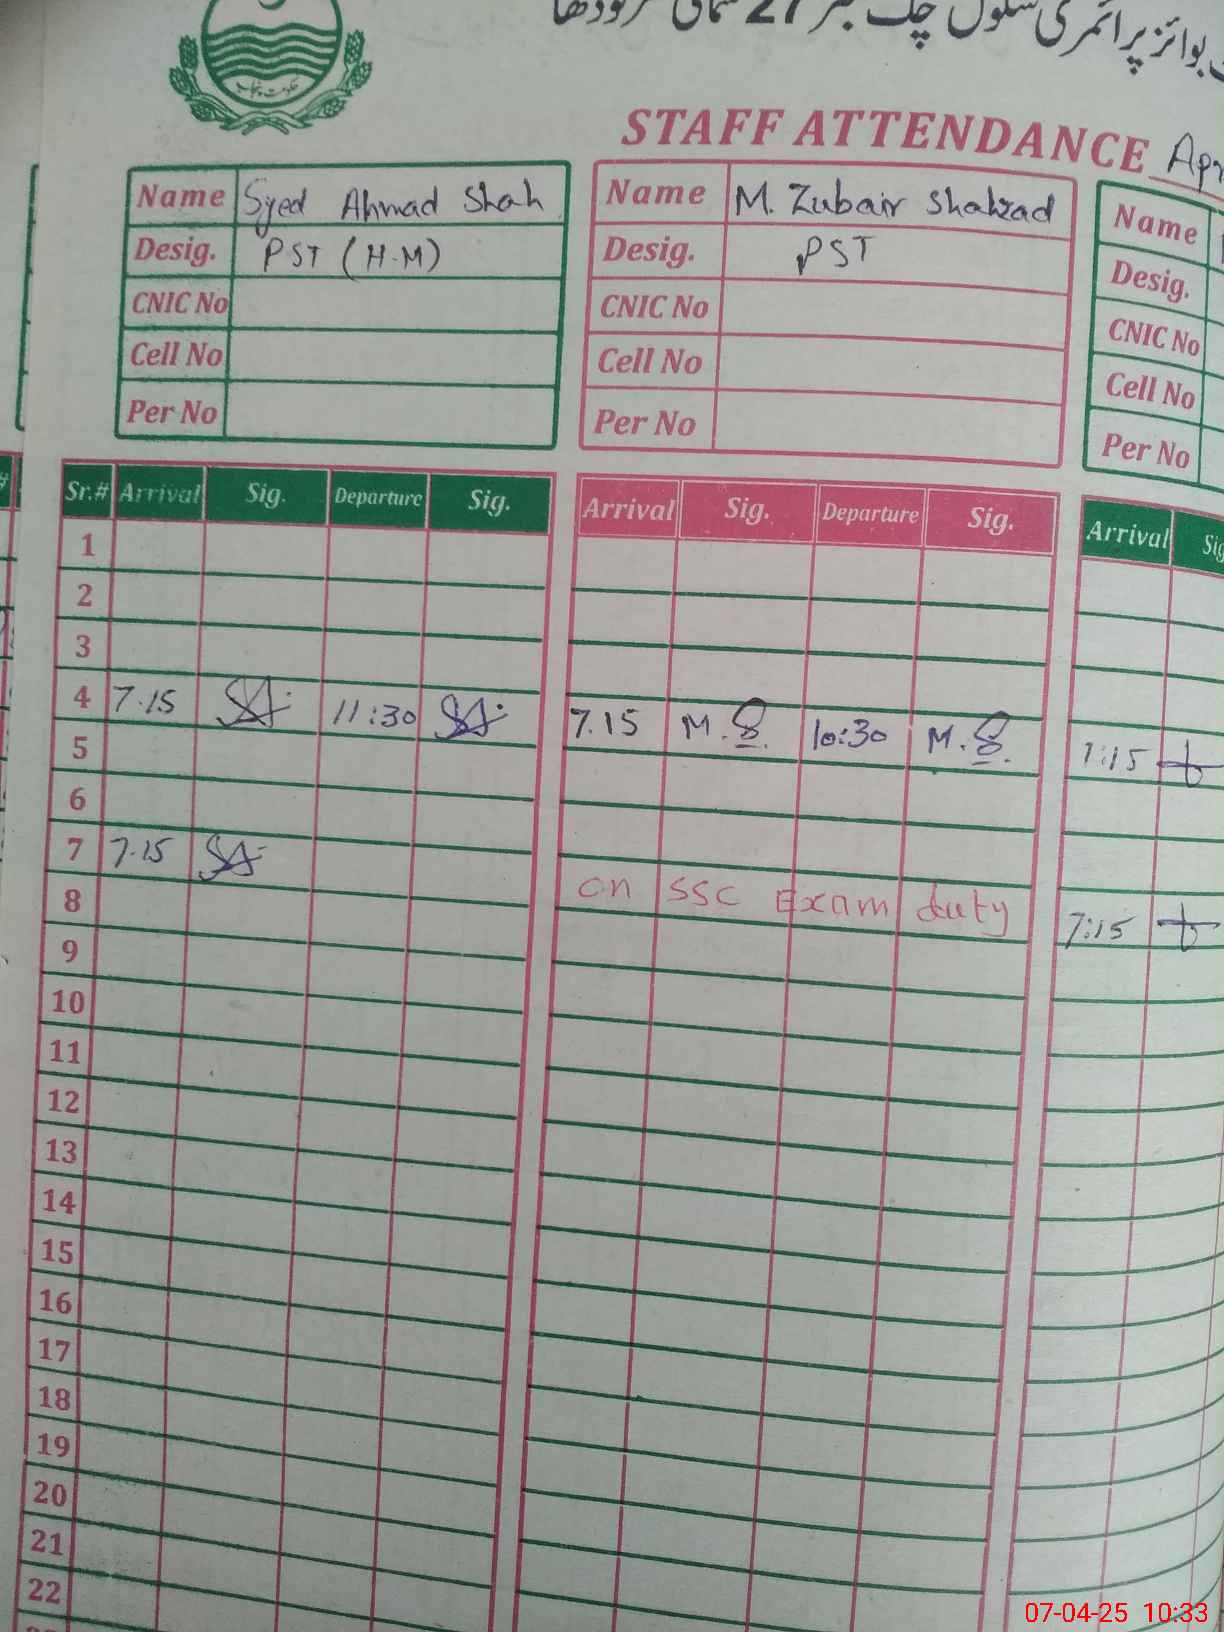 حکومت پنجاب
بوائز پرائمری سکول چک نمبر 27 شمالی سرگودھا
STAFF ATTENDANCE Apr
Name Syed Ahmad Shah
Desig. PST (H.M)
CNIC No
Cell No
Per No
Name M. Zubair Shahzad
Desig. PST
CNIC No
Cell No
Per No
Name
Desig.
CNIC No
Cell No
Per No
Sr.# Arrival Sig. Departure Sig. Arrival Sig. Departure Sig. Arrival Sig
1
2
3
4 7.15 11:30 7.15 M.S. 10:30 M.S. 7:15
5
6
7 7.15 on SSC Exam duty 7:15
8
9
10
11
12
13
14
15
16
17
18
19
20
21
22
07-04-25 10:33